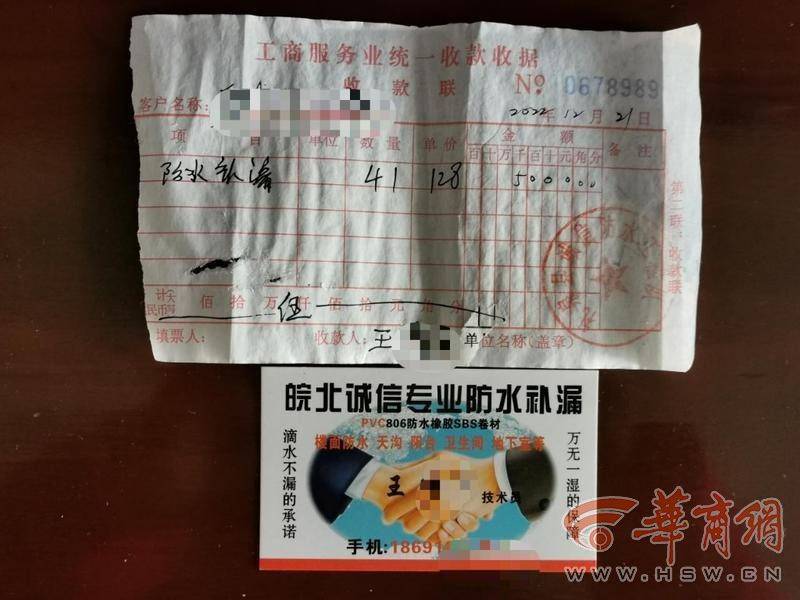 工商服务业统一收款收据
收款联 № 0678989
客户名称:
2022年12月21日
项目 单位 数量 单价 金额 备注
百十万千百十元角分
防水补漏 41 128 500000
第二联:收款联
计(大写)人民币 佰拾万伍仟佰拾元角分
填票人: 收款人:王 单位名称(盖章)
皖北诚信专业防水补漏
PVC806防水橡胶SBS卷材
楼面防水 天沟 阳台 卫生间 地下室等
滴水不漏的承诺
万无一湿的保障
王 技术员
手机:18691
华商网
WWW.HSW.CN